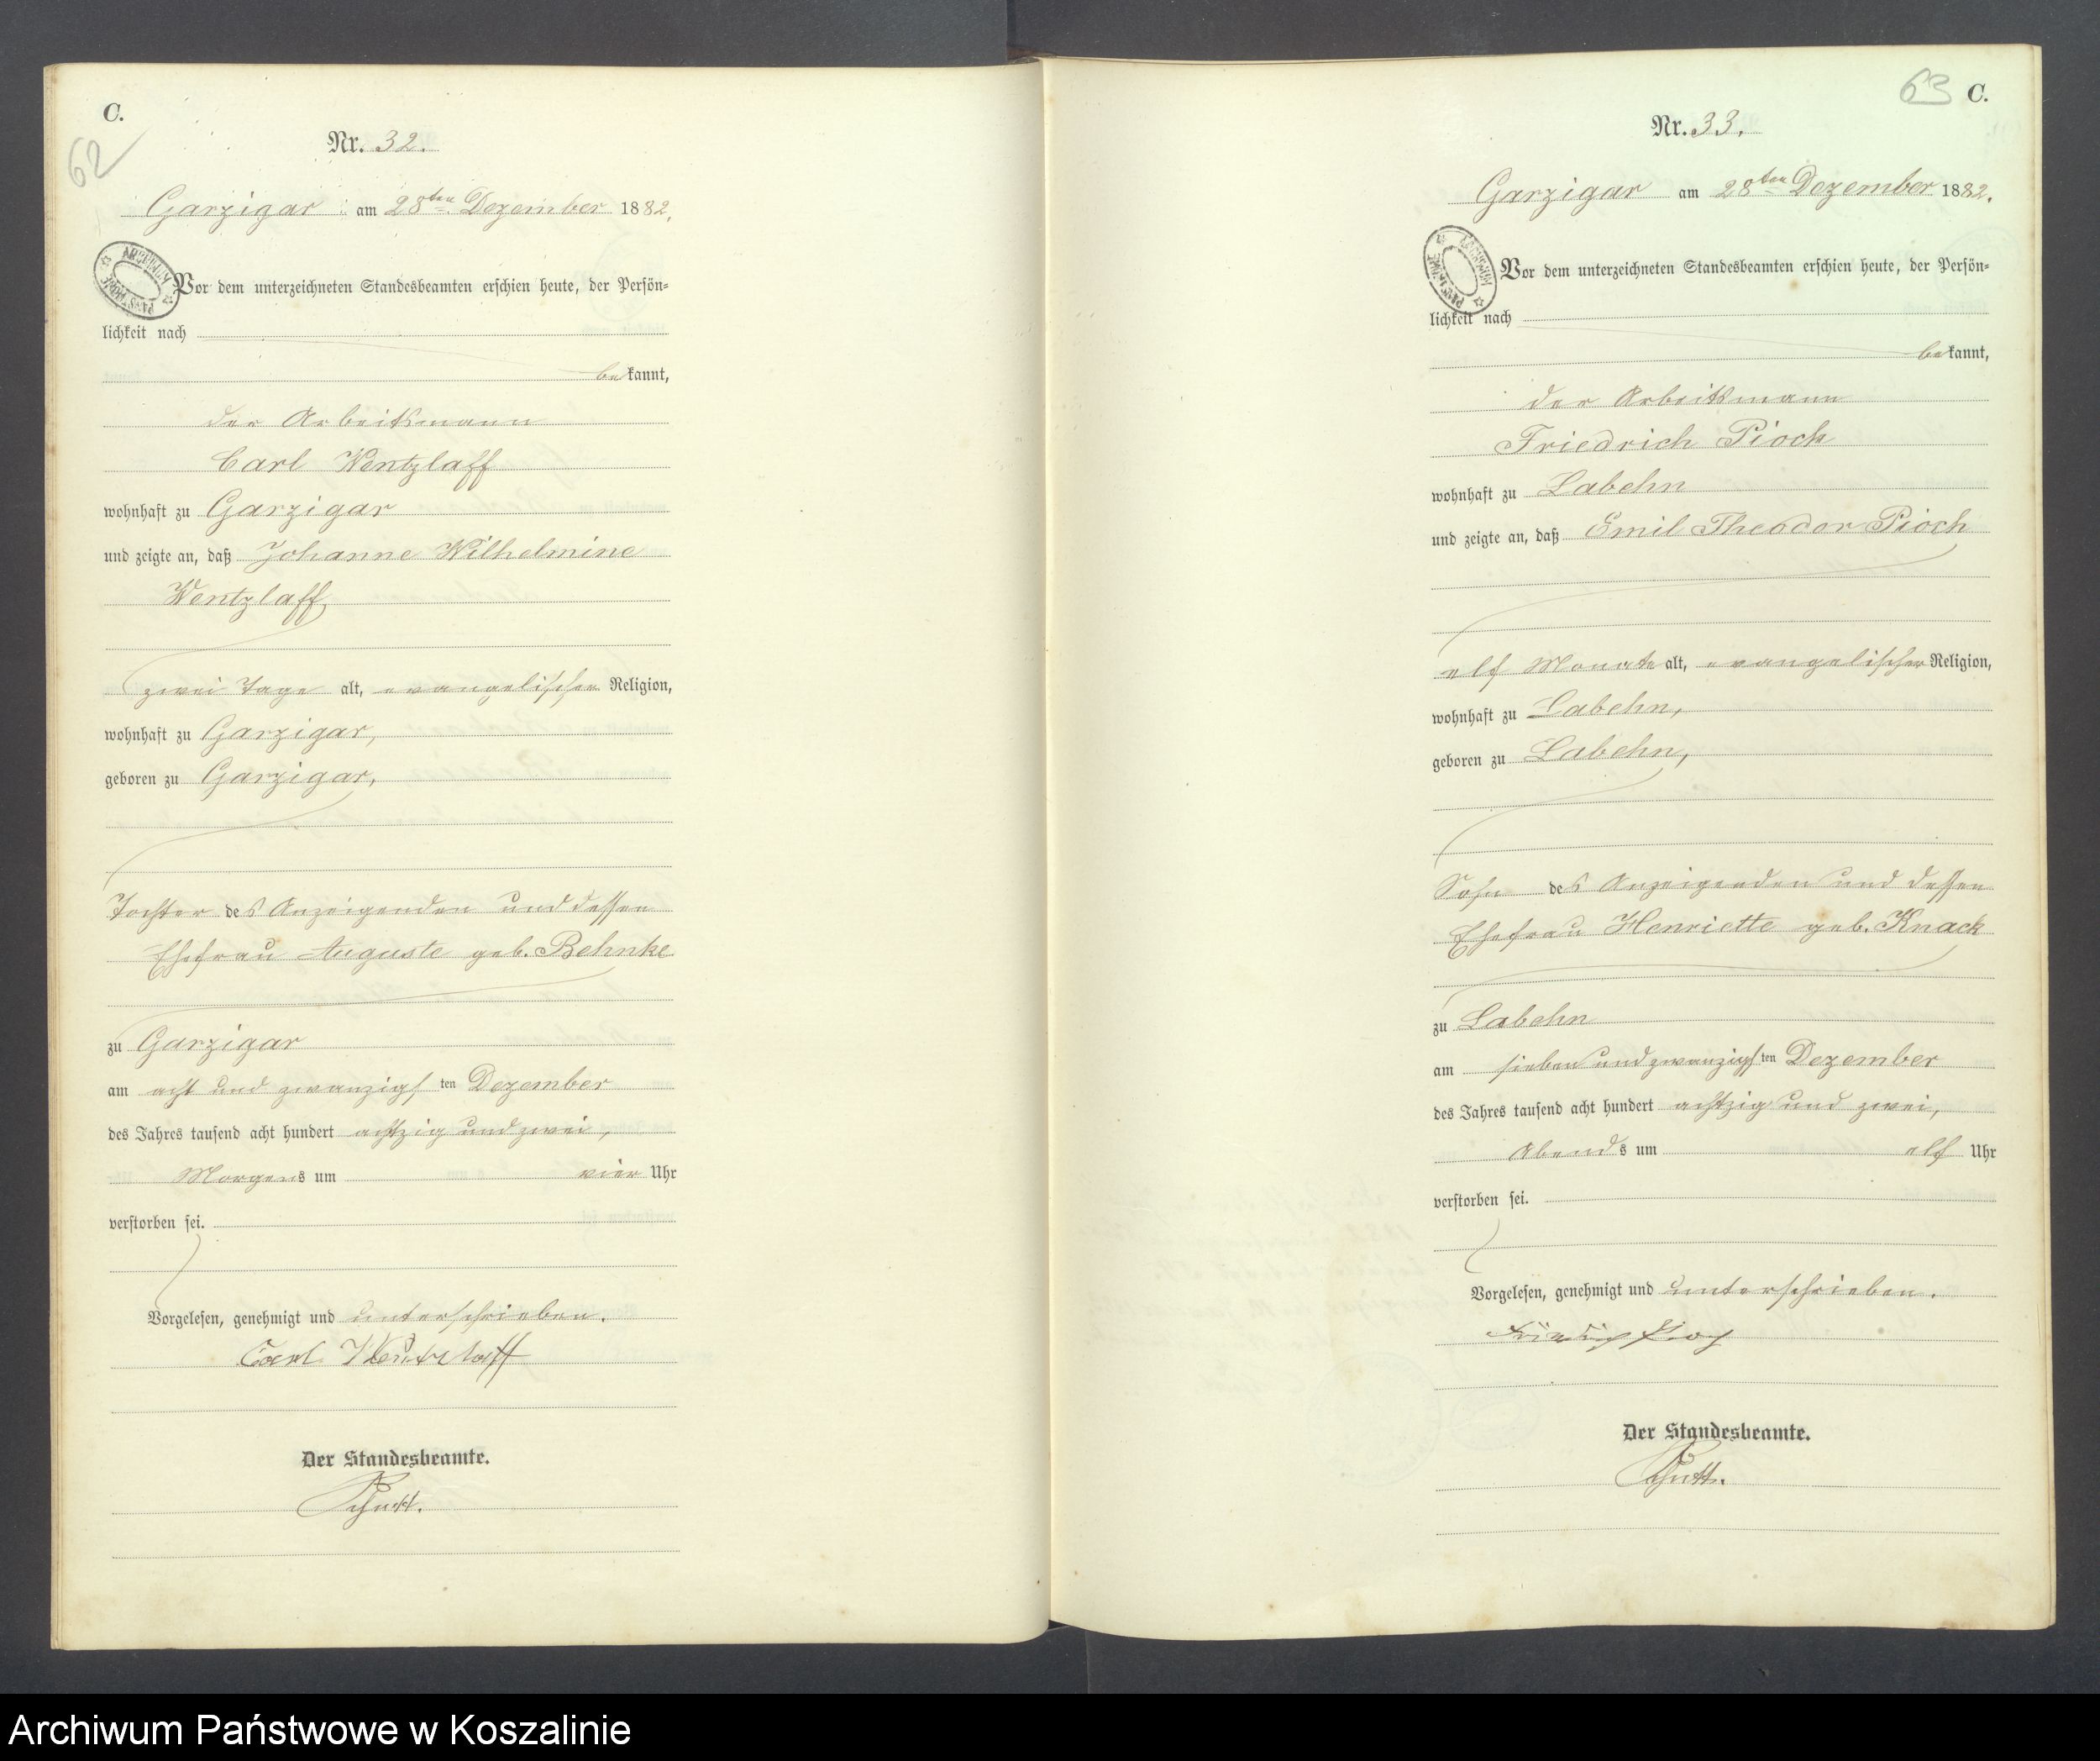 C.
62
Nr. 32.
Garzigar am 28ten Dezember 1882.
ARCHIWUM PAŃSTWOWE
Vor dem unterzeichneten Standesbeamten erschien heute, der Persön=
lichkeit nach
bekannt,
der Arbeitsmann
Carl Wentzlaff
wohnhaft zu Garzigar
und zeigte an, daß Johanne Wilhelmine
Wentzlaff
zwei Tage alt, evangelischer Religion,
wohnhaft zu Garzigar,
geboren zu Garzigar,
Tochter des Anzeigenden und dessen
Ehefrau Auguste geb. Behnke
zu Garzigar
am acht und zwanzigsten Dezember
des Jahres tausend acht hundert achtzig und zwei,
Morgens um vier Uhr
verstorben sei.
Vorgelesen, genehmigt und unterschrieben.
Carl Wentzlaff
Der Standesbeamte.
63 C.
Nr. 33.
Garzigar am 28ten Dezember 1882.
ARCHIWUM PAŃSTWOWE
Vor dem unterzeichneten Standesbeamten erschien heute, der Persön=
lichkeit nach
bekannt,
der Arbeitsmann
Friedrich Pioch
wohnhaft zu Labehn
und zeigte an, daß Emil Theodor Pioch
elf Monate alt, evangelischer Religion,
wohnhaft zu Labehn,
geboren zu Labehn,
Sohn des Anzeigenden und dessen
Ehefrau Henriette geb. Knack
zu Labehn
am sieben und zwanzigsten Dezember
des Jahres tausend acht hundert achtzig und zwei,
Abends um elf Uhr
verstorben sei.
Vorgelesen, genehmigt und unterschrieben.
Friedrich Pioch
Der Standesbeamte.
Archiwum Państwowe w Koszalinie